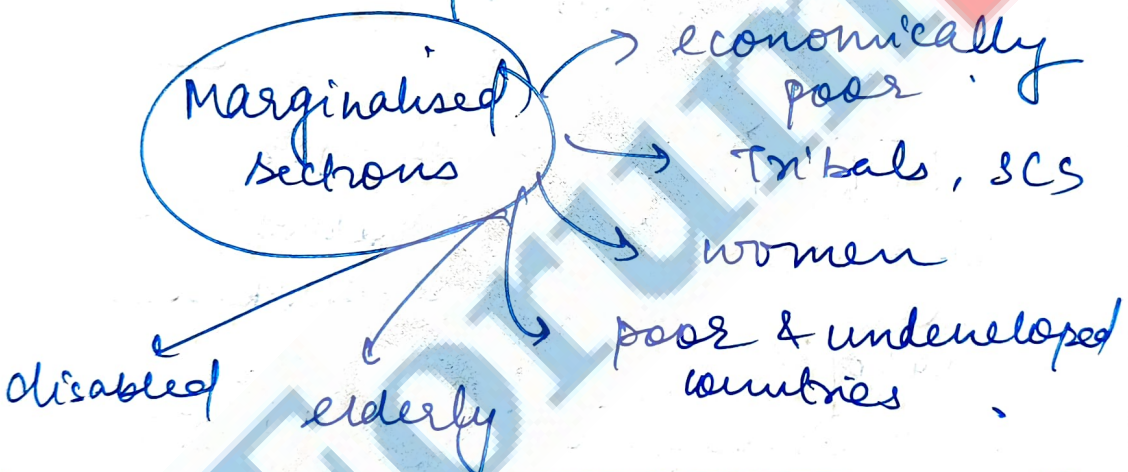 Marginalised
sections
economically
poor
Tribals, SCs
women
poor & undeveloped
countries
disabled
elderly
Forum